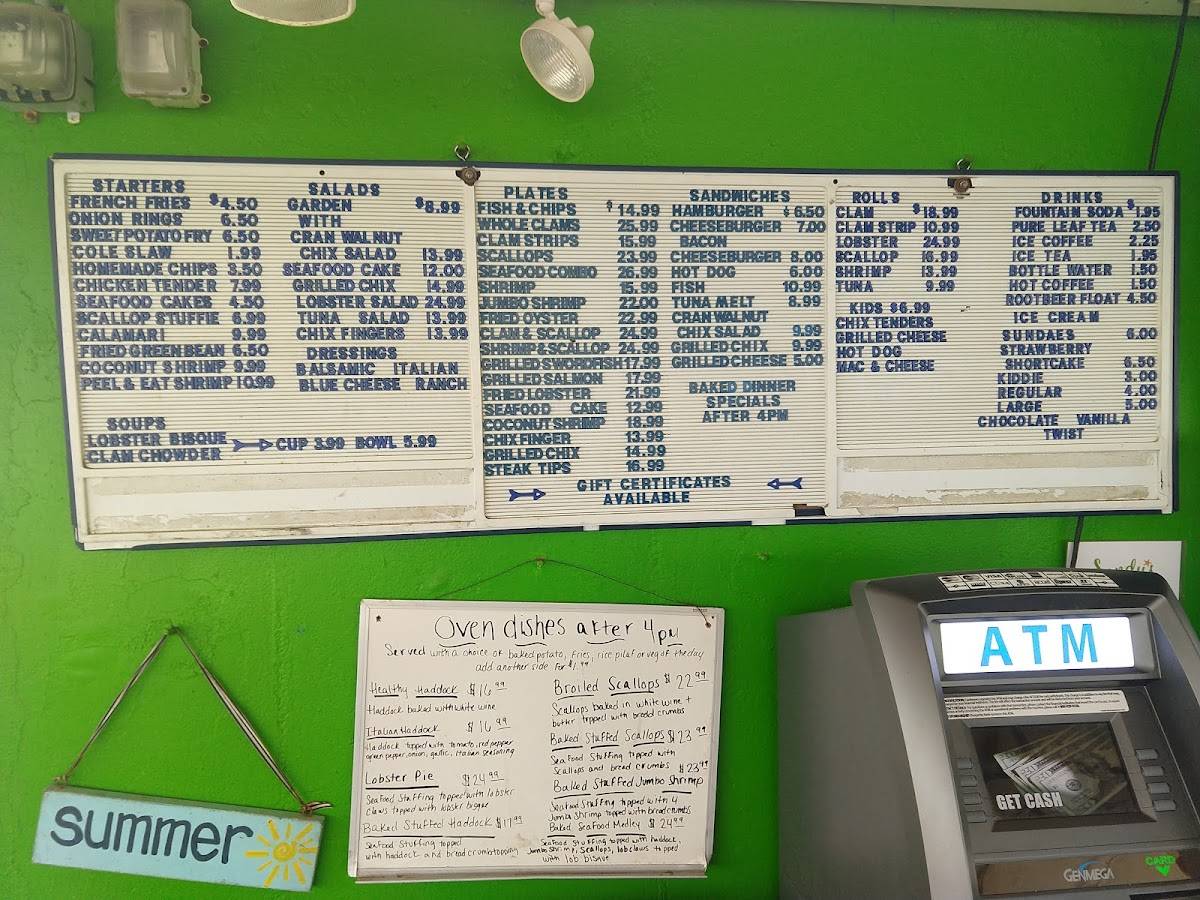 STARTERS
FRENCH FRIES $4.50
ONION RINGS 6.50
SWEET POTATO FRY 6.50
COLE SLAW 1.99
HOMEMADE CHIPS 3.50
CHICKEN TENDER 7.99
SEAFOOD CAKES 4.50
SCALLOP STUFFIE 6.99
CALAMARI 9.99
FRIED GREEN BEAN 6.50
COCONUT SHRIMP 9.99
PEEL & EAT SHRIMP 10.99
SOUPS
LOBSTER BISQUE
CLAM CHOWDER
CUP 3.99 BOWL 5.99
SALADS
GARDEN $8.99
WITH
CRAN WALNUT
CHIX SALAD 13.99
SEAFOOD CAKE 12.00
GRILLED CHIX 14.99
LOBSTER SALAD 24.99
TUNA SALAD 13.99
CHIX FINGERS 13.99
DRESSINGS
BALSAMIC ITALIAN
BLUE CHEESE RANCH
PLATES
FISH & CHIPS $14.99
WHOLE CLAMS 25.99
CLAM STRIPS 15.99
SCALLOPS 23.99
SEAFOOD COMBO 26.99
SHRIMP 15.99
JUMBO SHRIMP 22.00
FRIED OYSTER 22.99
CLAM & SCALLOP 24.99
SHRIMP & SCALLOP 24.99
GRILLED SWORDFISH 17.99
GRILLED SALMON 17.99
FRIED LOBSTER 21.99
SEAFOOD CAKE 12.99
COCONUT SHRIMP 18.99
CHIX FINGER 13.99
GRILLED CHIX 14.99
STEAK TIPS 16.99
SANDWICHES
HAMBURGER $6.50
CHEESEBURGER 7.00
BACON
CHEESEBURGER 8.00
HOT DOG 6.00
FISH 10.99
TUNA MELT 8.99
CRAN WALNUT
CHIX SALAD 9.99
GRILLED CHIX 9.99
GRILLED CHEESE 5.00
BAKED DINNER
SPECIALS
AFTER 4PM
GIFT CERTIFICATES
AVAILABLE
ROLLS
CLAM $18.99
CLAM STRIP 10.99
LOBSTER 24.99
SCALLOP 16.99
SHRIMP 13.99
TUNA 9.99
KIDS $6.99
CHIX TENDERS
GRILLED CHEESE
HOT DOG
MAC & CHEESE
DRINKS
FOUNTAIN SODA $1.95
PURE LEAF TEA 2.50
ICE COFFEE 2.25
ICE TEA 1.95
BOTTLE WATER 1.50
HOT COFFEE 1.50
ROOTBEER FLOAT 4.50
ICE CREAM
SUNDAES 6.00
STRAWBERRY
SHORTCAKE 6.50
KIDDIE 3.00
REGULAR 4.00
LARGE 5.00
CHOCOLATE VANILLA
TWIST
Oven dishes after 4pm
Served with a choice of baked potato, fries, rice pilaf or veg of the day
add another side for $1.99
Healthy Haddock $16.99
Haddock baked with white wine
Italian Haddock $16.99
Haddock topped with tomato, red pepper
green pepper, onion, garlic, Italian seasoning
Lobster Pie $24.99
Seafood Stuffing topped with lobster
claws topped with lobster bisque
Baked Stuffed Haddock $17.99
Seafood Stuffing topped
with haddock and bread crumb topping
Broiled Scallops $22.99
Scallops baked in white wine +
butter topped with bread crumbs
Baked Stuffed Scallops $23.99
Sea Food Stuffing topped with
Scallops and bread crumbs
Baked Stuffed Jumbo Shrimp $23.99
Seafood Stuffing topped with 4
Jumbo Shrimp topped with bread crumbs
Baked Seafood Medley $24.99
Seafood Stuffing topped with haddock,
Jumbo Shrimp, Scallops, lob claws topped
with lob bisque
summer
ATM
GET CASH
GENMEGA
CARD